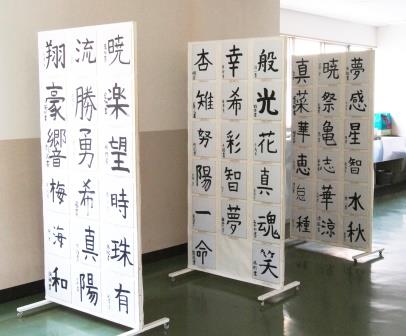 暁 流 翔
楽 勝 豪
望 勇 響
時 希 梅
珠 真 海
有 陽 和
般 幸 杏
光 希 雉
花 彩 努
真 智 陽
魂 夢 一
笑 命
夢 暁 真
感 祭 菜
星 亀 華
智 志 恵
水 華 怠
秋 涼 種